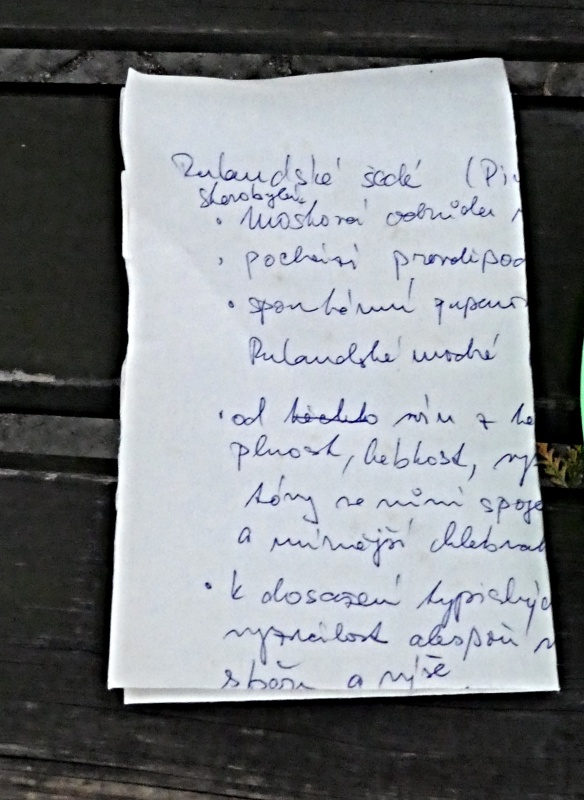 Rulandské šedé (Pi
starobylá
• moštová odrůda
• pochází pravděpod
• spontánní
Rulandské modré
• od těchto vín z
plnost, hebkost, vy
tóny ve vůni spoje
a mírnější chlebnat
• k dosažení typických
vyzrálost alespoň v
sběru a výše.